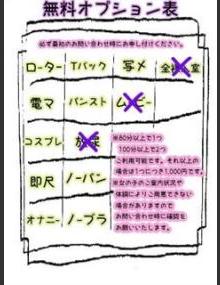 無料オプション表
必ず最初のお問い合わせ時にお申し付けください。
ローター Tバック 写メ 全 室
電マ パンスト ム ビー
コスプレ 放
即尺 ノーパン
オナニー ノーブラ
※80分以上で1つ
100分以上で2つ
ご利用可能です。それ以上の
場合は1つにつき1,000円です。
※女の子のご案内状況や
体調によりご用意できない
場合がありますので
お問い合わせ時に確認を
お願いいたします。